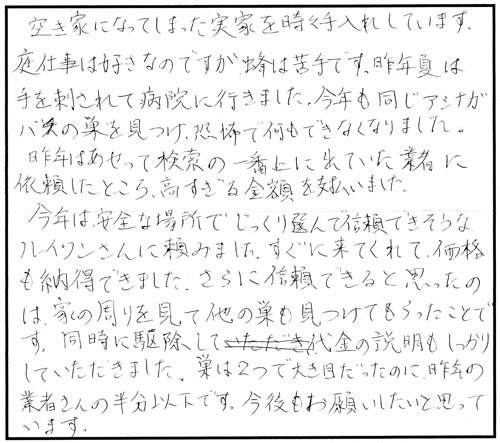 空き家になってしまった実家を時々手入れしています。
庭仕事は好きなのですが、蜂は苦手です。昨年夏は
手を刺されて病院に行きました。今年も同じアシナガ
バチの巣を見つけ、恐怖で何もできなくなりました。
昨年はあせって検索の一番上に出ていた業者に
依頼したところ、高すぎる金額を支払いました。
今年は、安全な場所でじっくり選んで信頼できそうな
ハレイワンさんに頼みました。すぐに来てくれて、価格
も納得できました。さらに信頼できると思ったの
は、家の周りを見て他の巣も見つけてもらったことで
す。同時に駆除して代金の説明もしっかり
していただきました。巣は2つで大き目だったのに、昨年の
業者さんの半分以下です。今後もお願いしたいと思って
います。